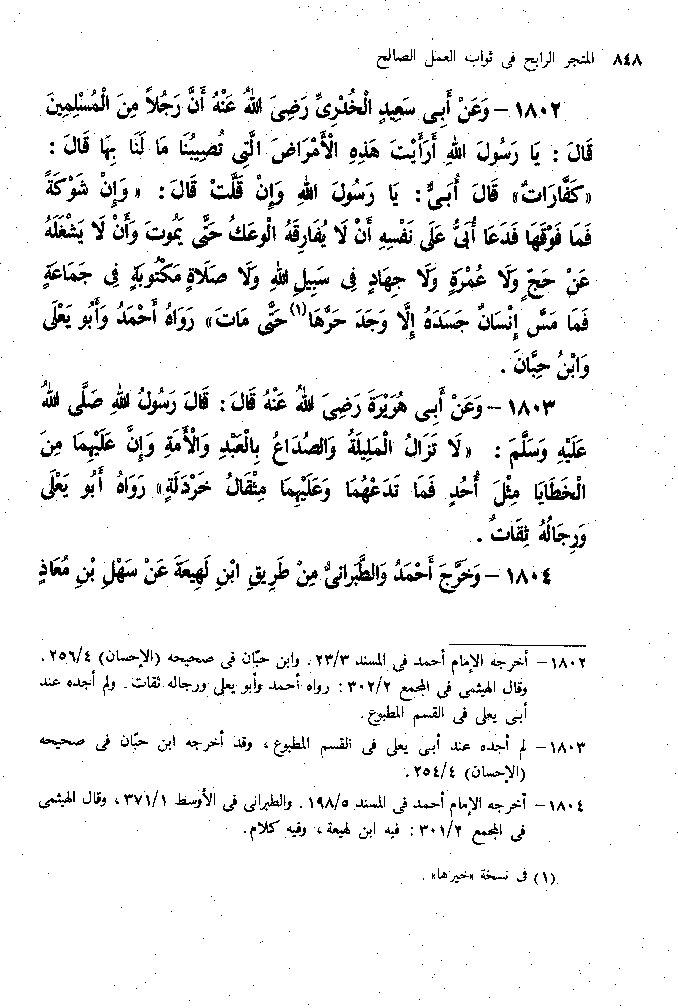 ٨٤٨ المتجر الرابح فى ثواب العمل الصالح
١٨٠٢ – وَعَنْ أَبِى سَعِيدٍ الْخُدْرِىِّ رَضِىَ اللهُ عَنْهُ أَنَّ رَجُلاً مِنَ الْمُسْلِمِينَ
قَالَ : يَا رَسُولَ اللهِ أَرَأَيْتَ هَذِهِ الْأَمْرَاضَ الَّتِى تُصِيبُنَا مَا لَنَا بِهَا قَالَ :
«كَفَّارَاتٌ» قَالَ أُبَىٌّ : يَا رَسُولَ اللهِ وَإِنْ قَلَّتْ قَالَ : «وَإِنْ شَوْكَةً
فَمَا فَوْقَهَا فَدَعَا أُبَىٌّ عَلَى نَفْسِهِ أَنْ لَا يُفَارِقَهُ الْوَعَكُ حَتَّى يَمُوتَ وَأَنْ لَا يَشْغَلَهُ
عَنْ حَجٍّ وَلَا عُمْرَةٍ وَلَا جِهَادٍ فِى سَبِيلِ اللهِ وَلَا صَلَاةٍ مَكْتُوبَةٍ فِى جَمَاعَةٍ
فَمَا مَسَّ إِنْسَانٌ جَسَدَهُ إِلَّا وَجَدَ حَرَّهَا(١) حَتَّى مَاتَ» رَوَاهُ أَحْمَدُ وَأَبُو يَعْلَى
وَابْنُ حِبَّانَ .
١٨٠٣ – وَعَنْ أَبِى هُرَيْرَةَ رَضِىَ اللهُ عَنْهُ قَالَ : قَالَ رَسُولُ اللهِ صَلَّى اللهُ
عَلَيْهِ وَسَلَّمَ : «لَا تَزَالُ الْمَلِيلَةُ وَالصُّدَاعُ بِالْعَبْدِ وَالْأَمَةِ وَإِنَّ عَلَيْهِمَا مِنَ
الْخَطَايَا مِثْلَ أُحُدٍ فَمَا تَدَعْهُمَا وَعَلَيْهِمَا مِثْقَالُ خَرْدَلَةٍ» رَوَاهُ أَبُو يَعْلَى
وَرِجَالُهُ ثِقَاتٌ .
١٨٠٤ – وَخَرَّجَ أَحْمَدُ وَالطَّبَرَانِىُّ مِنْ طَرِيقِ ابْنِ لَهِيعَةَ عَنْ سَهْلِ بْنِ مُعَاذٍ
١٨٠٢ – أخرجه الإمام أحمد فى المسند ٢٣/٣ . وابن حبّان فى صحيحه (الإحسان) ٢٥٦/٤ .
وقال الهيثمى فى المجمع ٣٠٢/٢ : رواه أحمد وأبو يعلى ورجاله ثقات . ولم أجده عند
أبى يعلى فى القسم المطبوع .
١٨٠٣ – لم أجده عند أبى يعلى فى القسم المطبوع ، وقد أخرجه ابن حبّان فى صحيحه
(الإحسان) ٢٥٤/٤ .
١٨٠٤ – أخرجه الإمام أحمد فى المسند ١٩٨/٥ . والطبرانى فى الأوسط ٣٧١/١ ، وقال الهيثمى
فى المجمع ٣٠١/٢ : فيه ابن لهيعة ، وفيه كلام.
(١) فى نسخة «خيرها» .